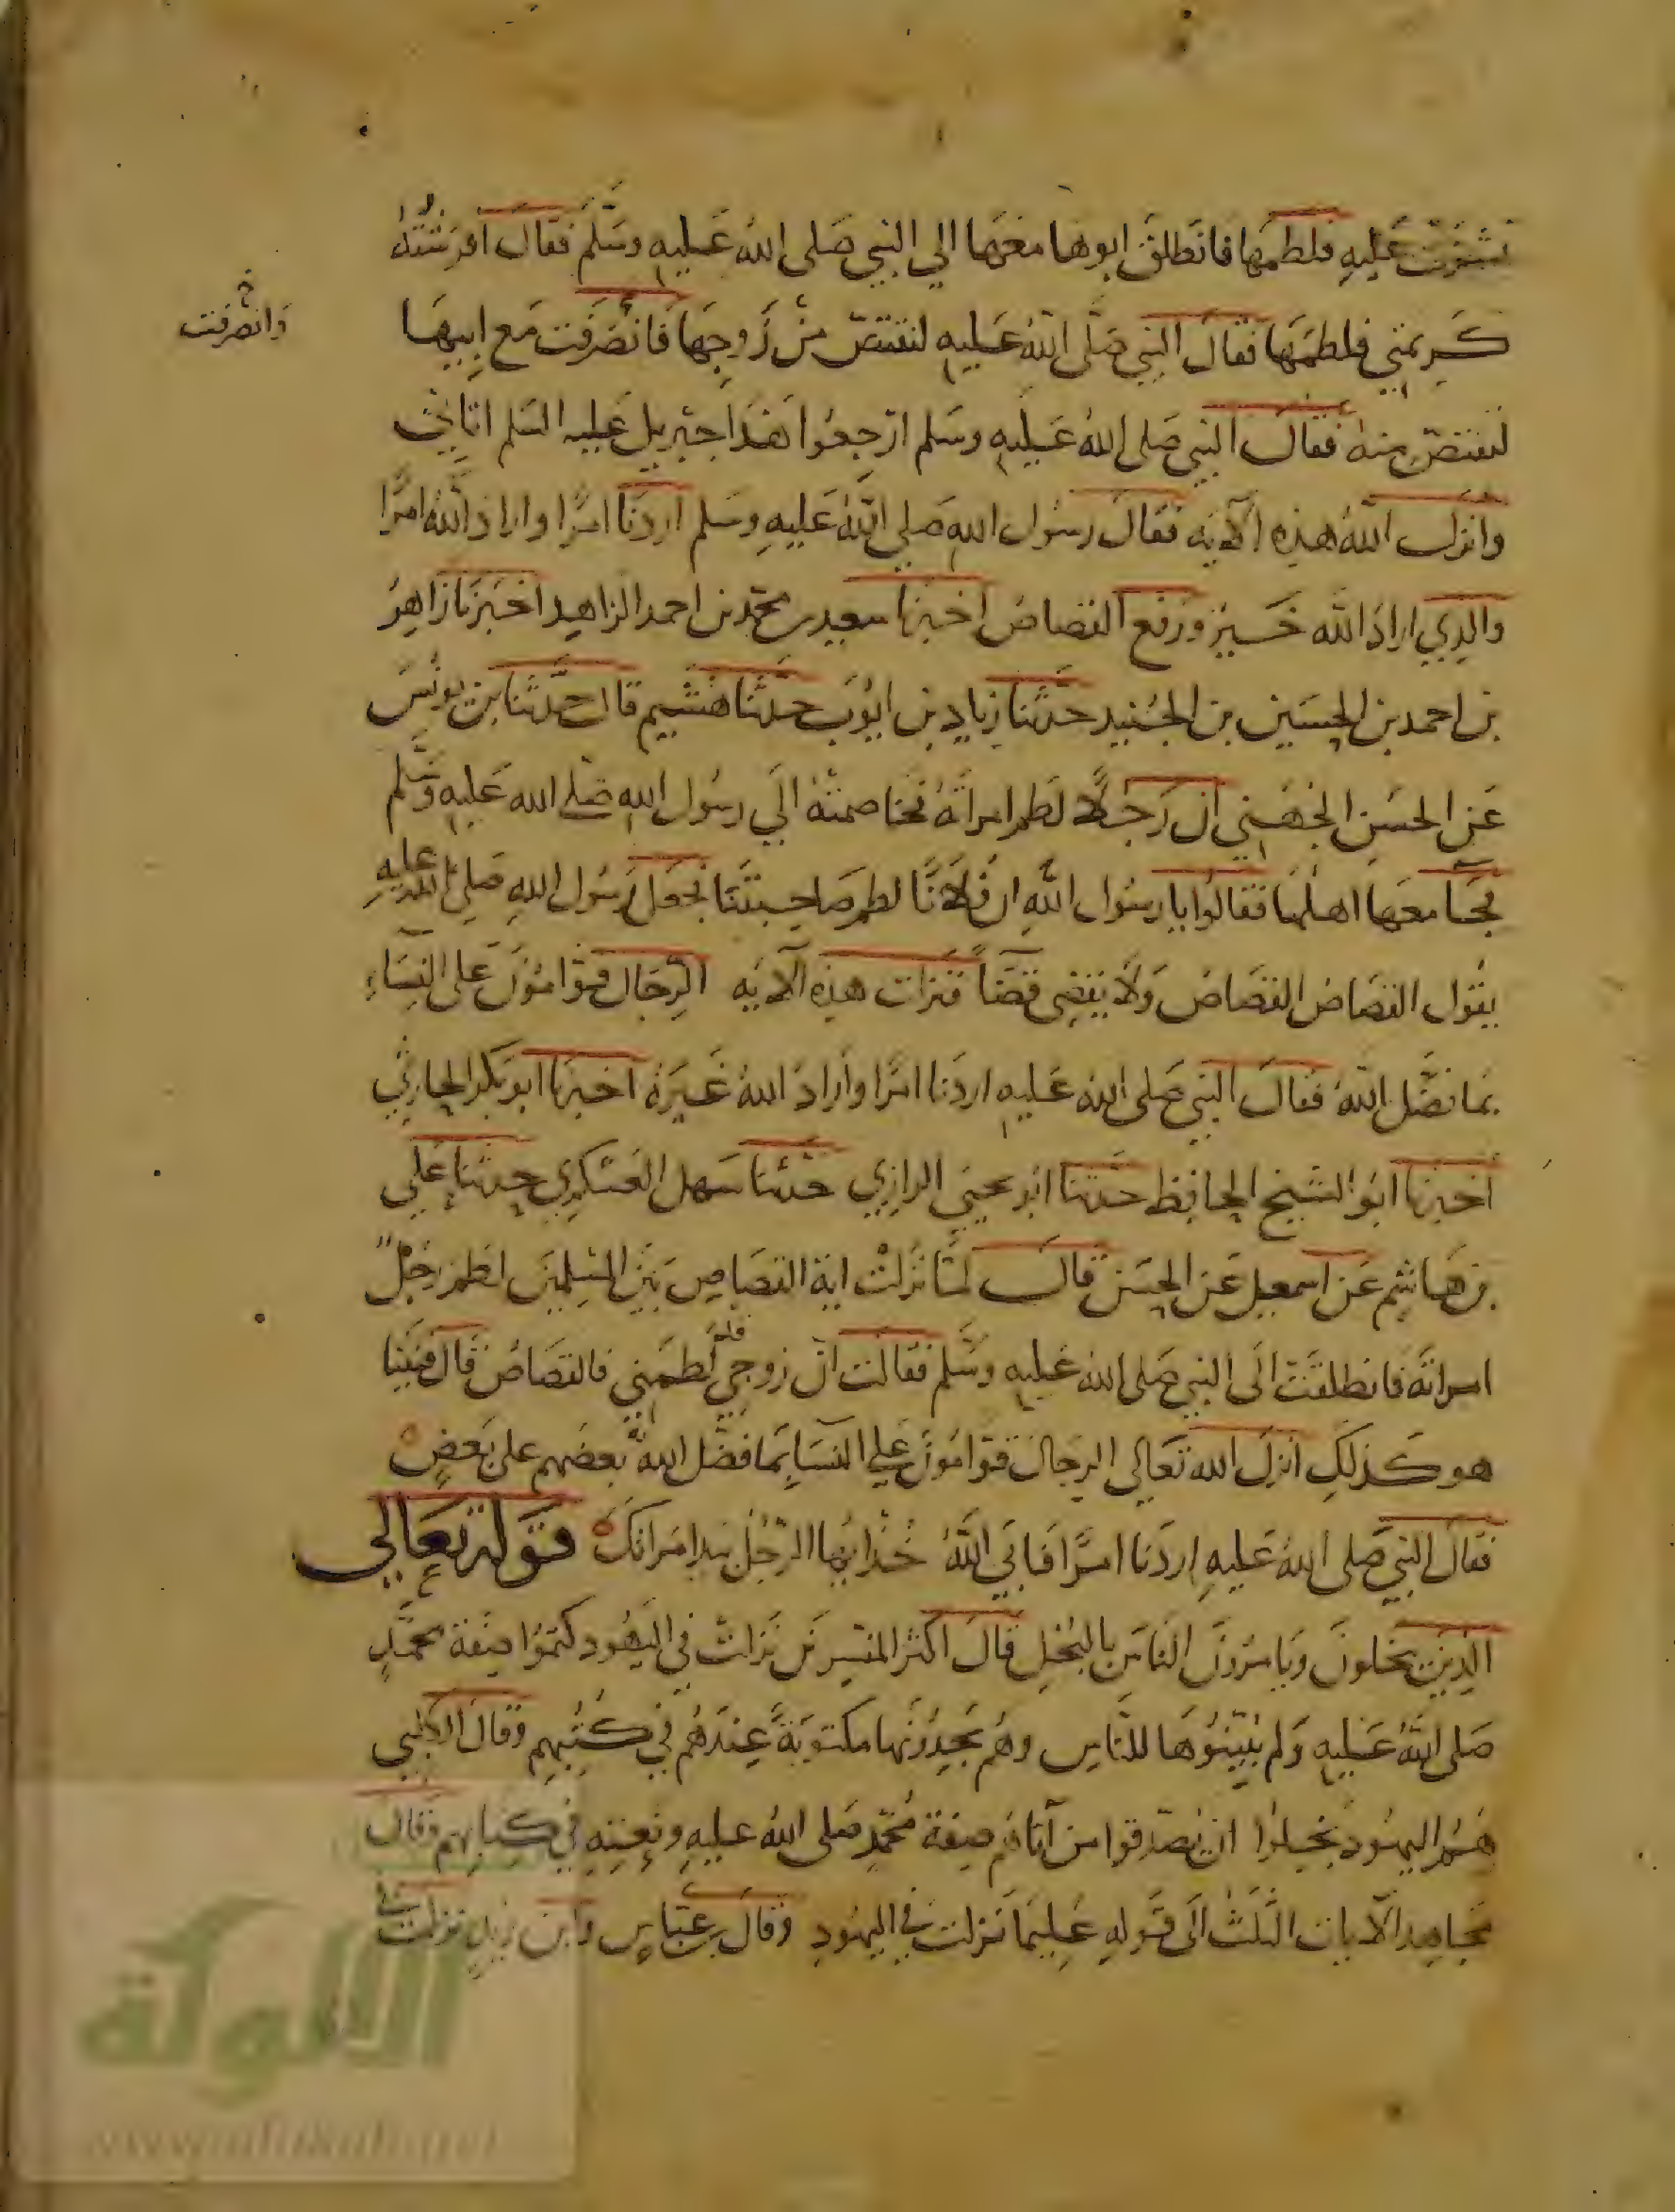 نشزت عليه فلطمها فانطلق ابوها معها الي النبي صلى الله عليه وسلم فقال افرشته
كريمتي فلطمها فقال النبي صلى الله عليه لتقتص من زوجها فانصرفت مع ابيها
وانصرفت
لتقتص منه فقال النبي صلى الله عليه وسلم ارجعوا هذا جبريل عليه السلم اتاني
وانزل الله هذه الآية فقال رسول الله صلي الله عليه وسلم اردنا امرًا واراد الله امرًا
والذي اراد الله خير ورفع القصاص اخبرنا سعيد بن محمد بن احمد الزاهد اخبرنا زاهر
بن احمد بن الحسين بن الجنيد حدثنا زياد بن ايوب حدثنا هشيم قال حدثنا بن يونس
عن الحسن ان رجلًا لطم امراته فخاصمته الي رسول الله صلى الله عليه وسلم
فجا معها اهلها فقالوا يا رسول الله ان فلانًا لطم صاحبتنا فجعل رسول الله صلي الله عليه
يقول القصاص القصاص ولا يقضى قضاً فنزلت هذه الآية الرجال قوامون على النساء
بما فضل الله فقال النبي صلى الله عليه اردنا امرًا واراد الله غيره اخبرنا ابو بكر الحارثي
اخبرنا ابو الشيخ الحافظ حدثنا ابو يحيى الرازي حدثنا سهل العسكري حدثنا علي
بن هاشم عن اسمعيل عن الحسن قال لمّا نزلت اية القصاص بين المسلمين لطم رجل
امراته فانطلقت الى النبي صلى الله عليه وسلم فقالت ان زوجي لطمني فالقصاص قال فبينا
هو كذلك انزل الله تعالي الرجال قوامون علي النسا بما فضل الله بعضهم على بعض
فقال النبي صلى الله عليه اردنا امرًا فابي الله خذ ايها الرجل بيد امراتك قوله تعالى
الذين يبخلون ويامرون الناس بالبخل قال اكثر المفسرين نزلت في اليهود كتموا صفة محمد
صلى الله عليه ولم يبينوها للناس وهم يجدونها مكتوبة عندهم في كتبهم وقال الكلبي
هم اليهود بخلوا ان يصدقوا من آتاهم صفة محمد صلى الله عليه ونعته في كتابهم وقال
مجاهد الآيات الثلث الى قوله عليما نزلت في اليهود وقال بن عباس وابن زيد نزلت في